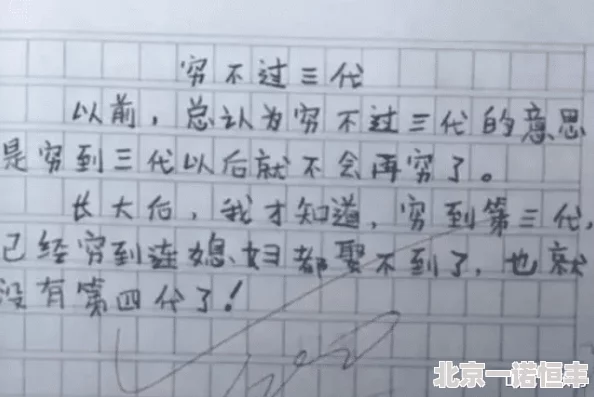 穷不过三代
以前，总认为穷不过三代的意思
是穷到三代以后就不会再穷了。
长大后，我才知道，穷到第三代，
已经穷到连媳妇都娶不到了，也就
没有第四代了！
北京一诺恒丰